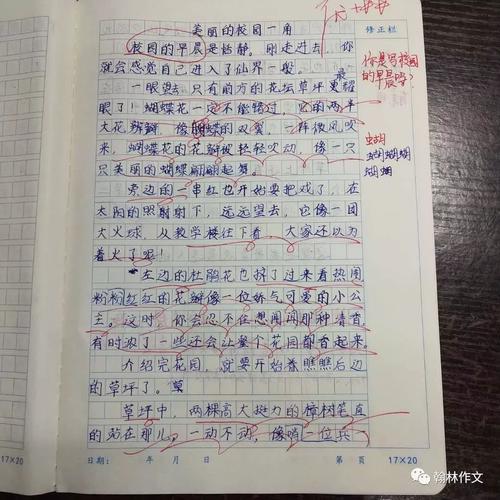 美丽的校园一角
优
修正栏
校园的早晨是恬静。刚走进去，你
就会感觉自己进入了仙界一般。
你是写校园
的早晨吗？
一眼望去，只有前方的花坛草坪最耀
眼了！蝴蝶花一定不能错过，它的两半
大花瓣，像蝴蝶的双翼，一阵微风吹
来，蝴蝶花的花瓣被轻轻吹动，像一只
只美丽的蝴蝶翩翩起舞。
蝴
蝴蝴蝴
蝴蝴
旁边的一串红也开始耍把戏了，在
太阳的照射下，远远望去，它像一团
大火球，从教学楼往下看，大家还以为
着火了呢！
左边的杜鹃花也挤了过来看热闹
粉粉红红的花瓣像一位娇气可爱的小公
主。这时，你会忍不住想闻闻那种清香，
有时浓了一些还会让整个花园都香起来。
介绍完花园，就要开始看瞧瞧后边
的草坪了。
草坪中，两棵高大挺力的樟树笔直
的站在那儿，一动不动，像哨一位兵
17×20
日期： 年 月 日
第 页 17×20
翰林作文